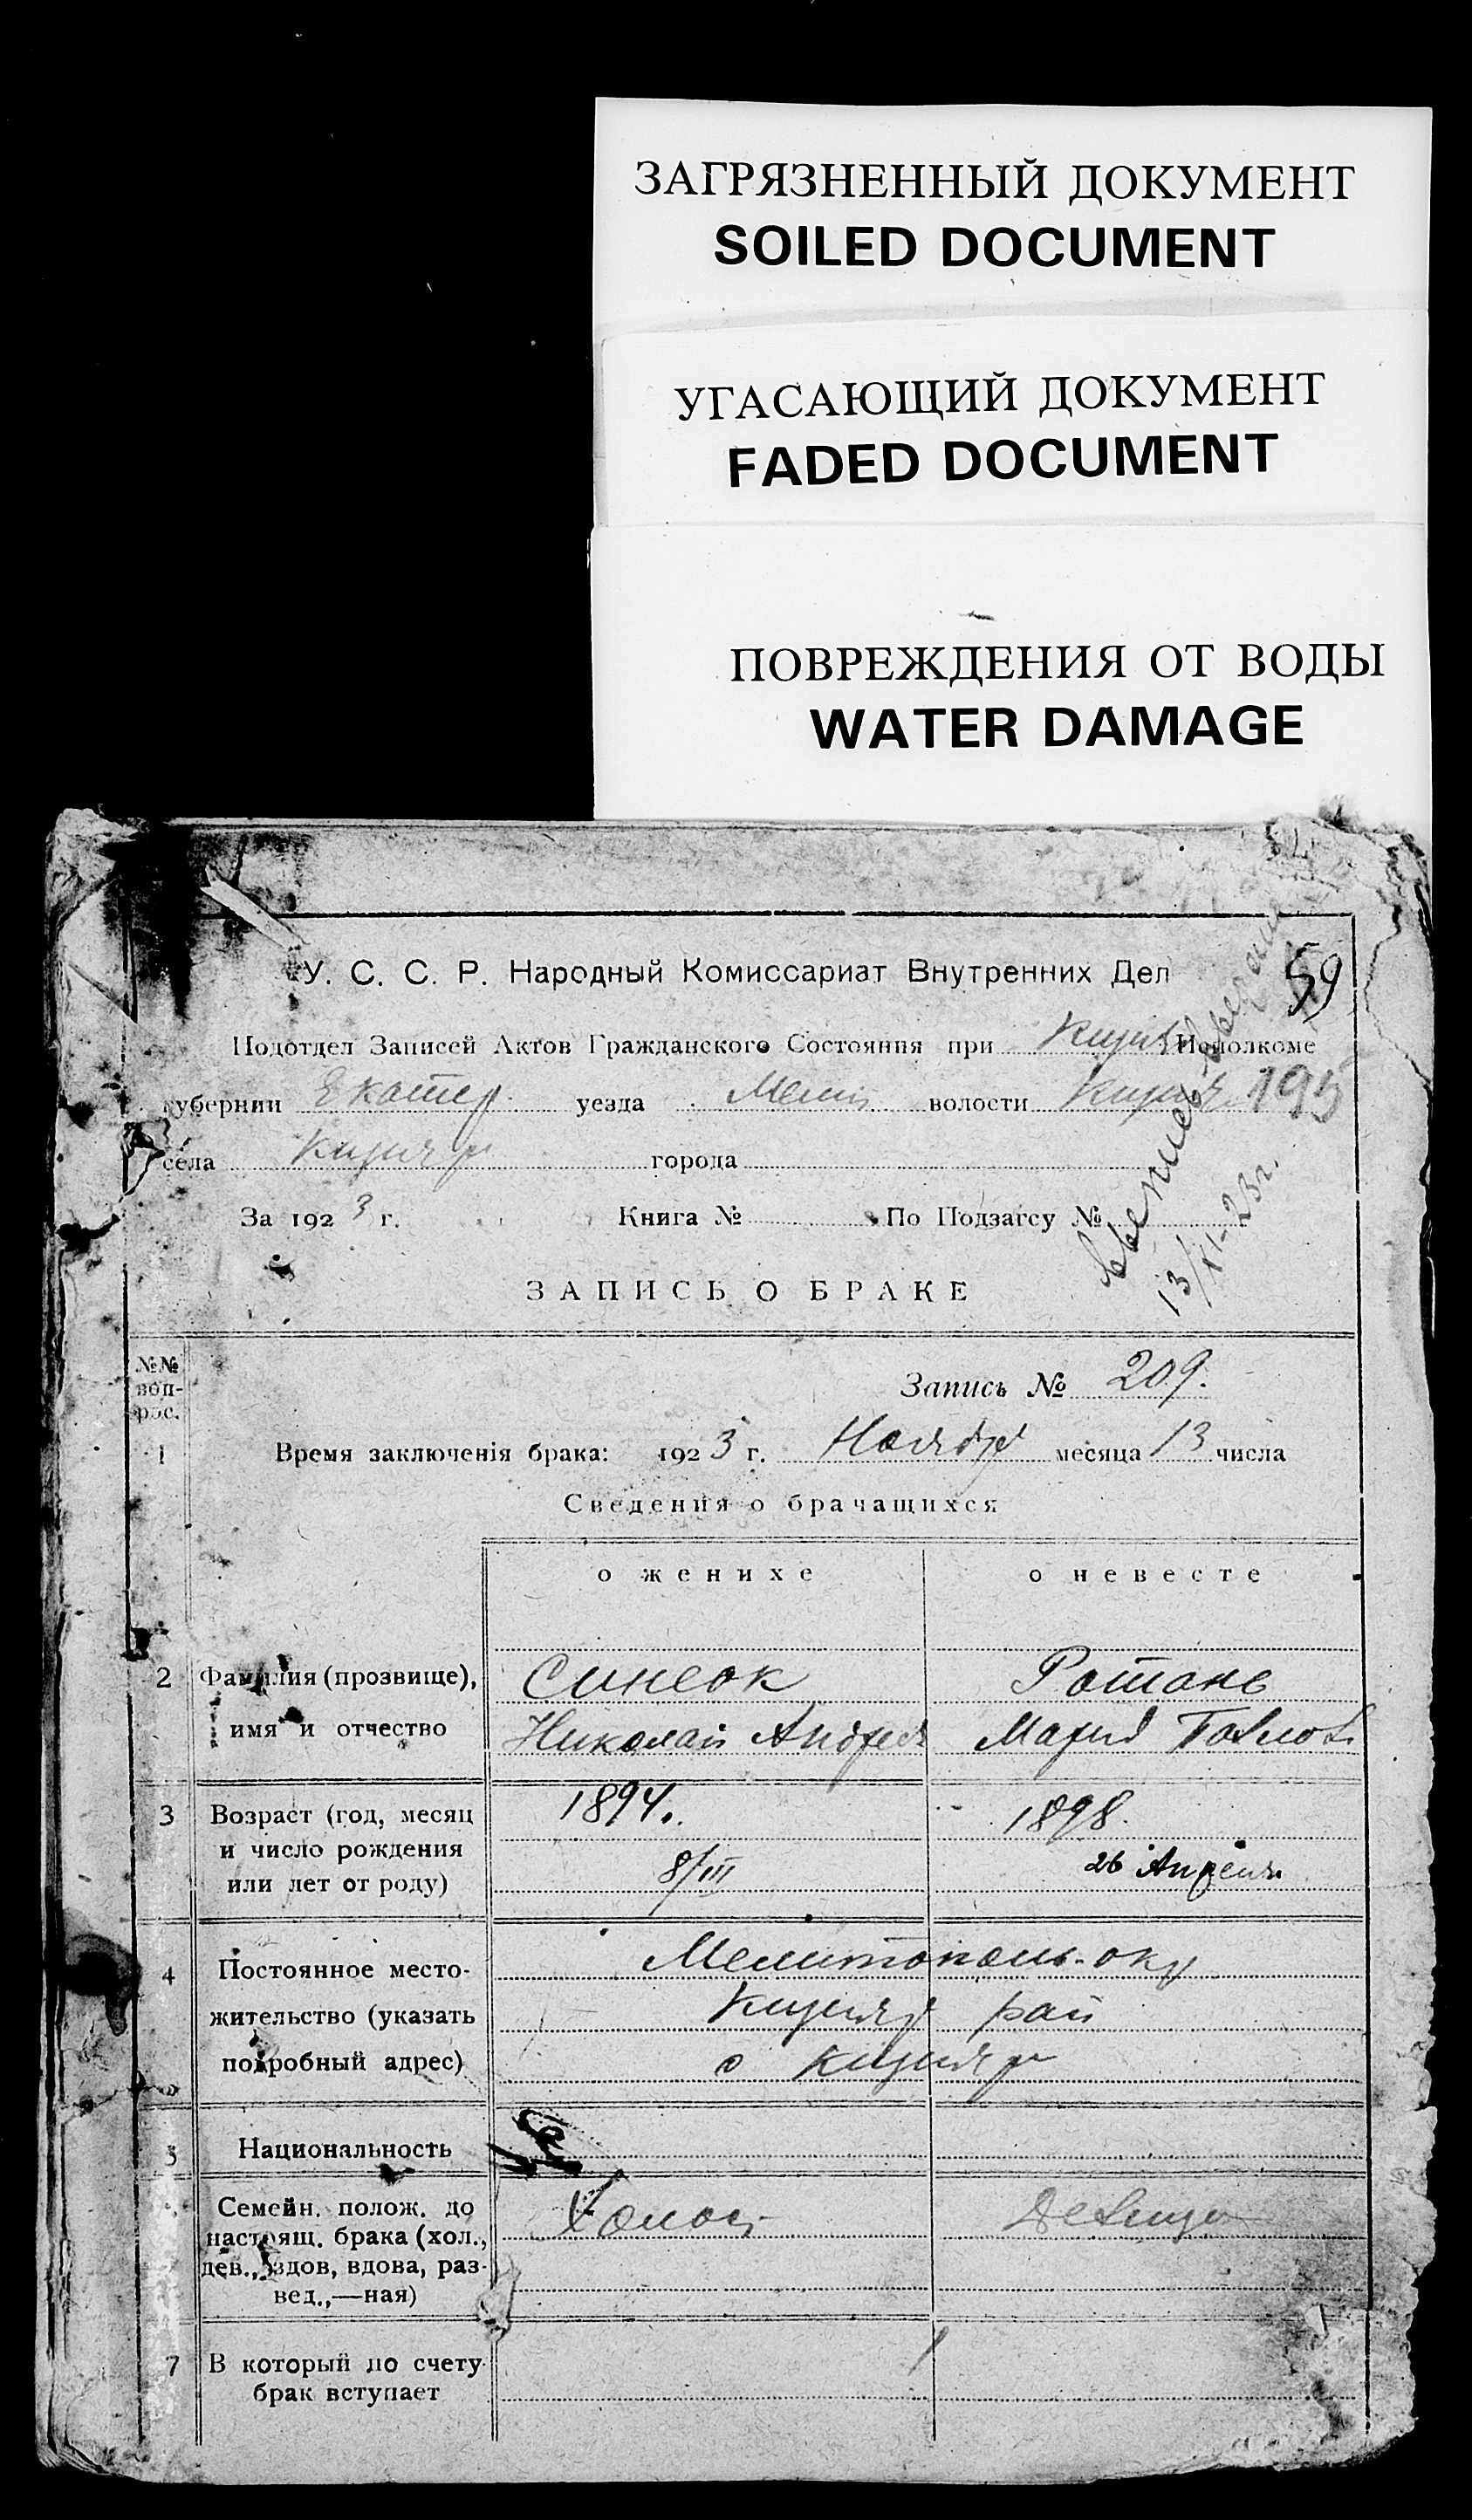 ЗАГРЯЗНЕННЫЙ ДОКУМЕНТ
SOILED DOCUMENT
УГАСАЮЩИЙ ДОКУМЕНТ
FADED DOCUMENT
ПОВРЕЖДЕНИЯ ОТ ВОДЫ
WATER DAMAGE
59
У. С. С. Р. Народный Комиссариат Внутренних Дел
Подотдел Записей Актов Гражданского Состояния при Исполкоме
губернии Екатер. уезда Мели волости 195
села Кизияр города
За 1923 г. Книга № По Подзагсу №
13/XI-23г.
ЗАПИСЬ О БРАКЕ
№№ воп-рос.
Запись № 209.
1 Время заключенія брака: 1923 г. Ноября месяца 13 числа
Сведения о брачащихся
о женихе о невесте
2 Фамилия (прозвище), Синеок Ротань
имя и отчество Николай Андрея Мария Павлов.
3 Возраст (год, месяц 1894. 1898.
и число рождения
или лет от роду) 8/III 26 Апреля
4 Постоянное место- Мелитополь. окр
жительство (указать Кизияр рай
подробный адрес) с Кизияр
5 Национальность
Семейн. полож. до Холост Девица
настоящ. брака (хол.,
дев., вдов, вдова, раз-
вед.,—ная)
7 В который по счету 1
брак вступает